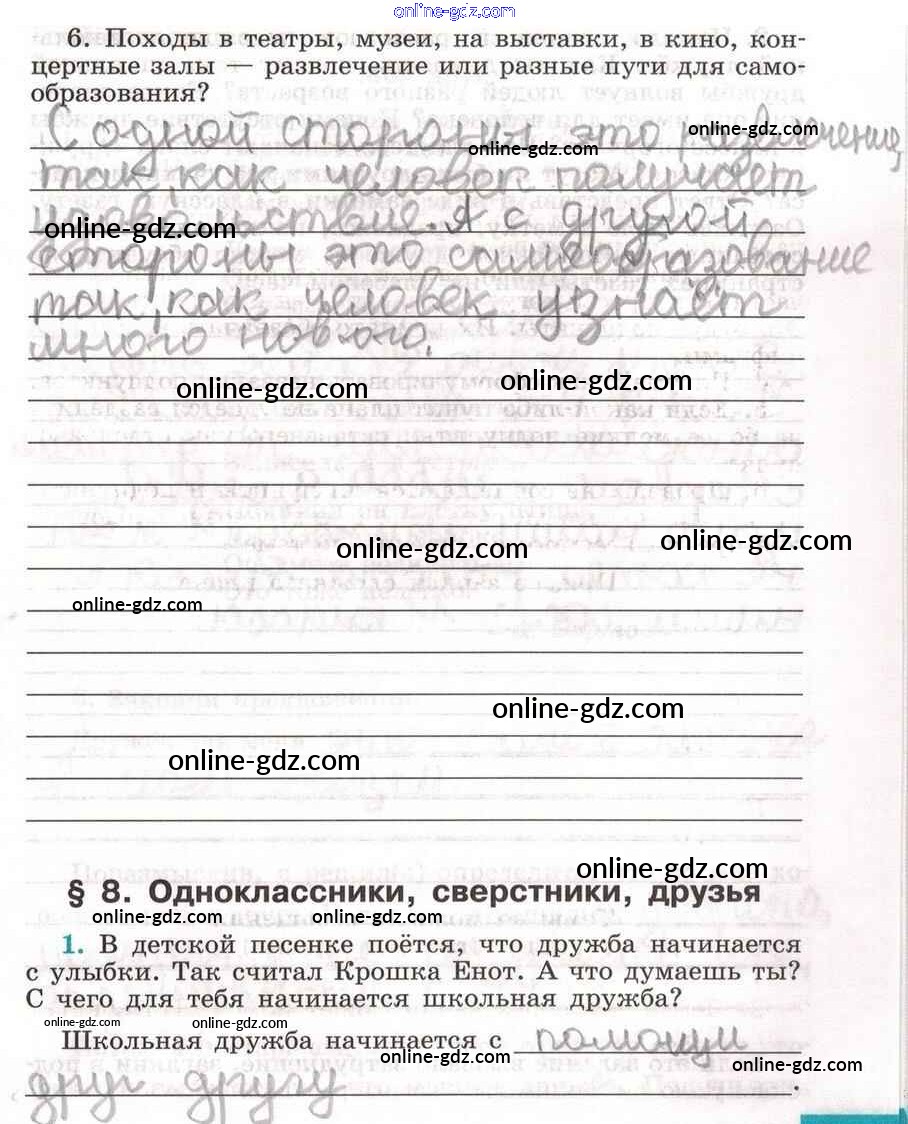 online-gdz.com
6. Походы в театры, музеи, на выставки, в кино, кон-
цертные залы — развлечение или разные пути для само-
образования?
С одной стороны это развлечение,
online-gdz.com
online-gdz.com
так как человек получает
удовольствие. А с другой
online-gdz.com
стороны это самообразование
так, как человек узнаёт
много нового.
online-gdz.com
online-gdz.com
online-gdz.com
online-gdz.com
online-gdz.com
online-gdz.com
online-gdz.com
online-gdz.com
§ 8. Одноклассники, сверстники, друзья
online-gdz.com
online-gdz.com
1. В детской песенке поётся, что дружба начинается
с улыбки. Так считал Крошка Енот. А что думаешь ты?
С чего для тебя начинается школьная дружба?
online-gdz.com
online-gdz.com
Школьная дружба начинается с помощи
online-gdz.com
online-gdz.com
друг другу.